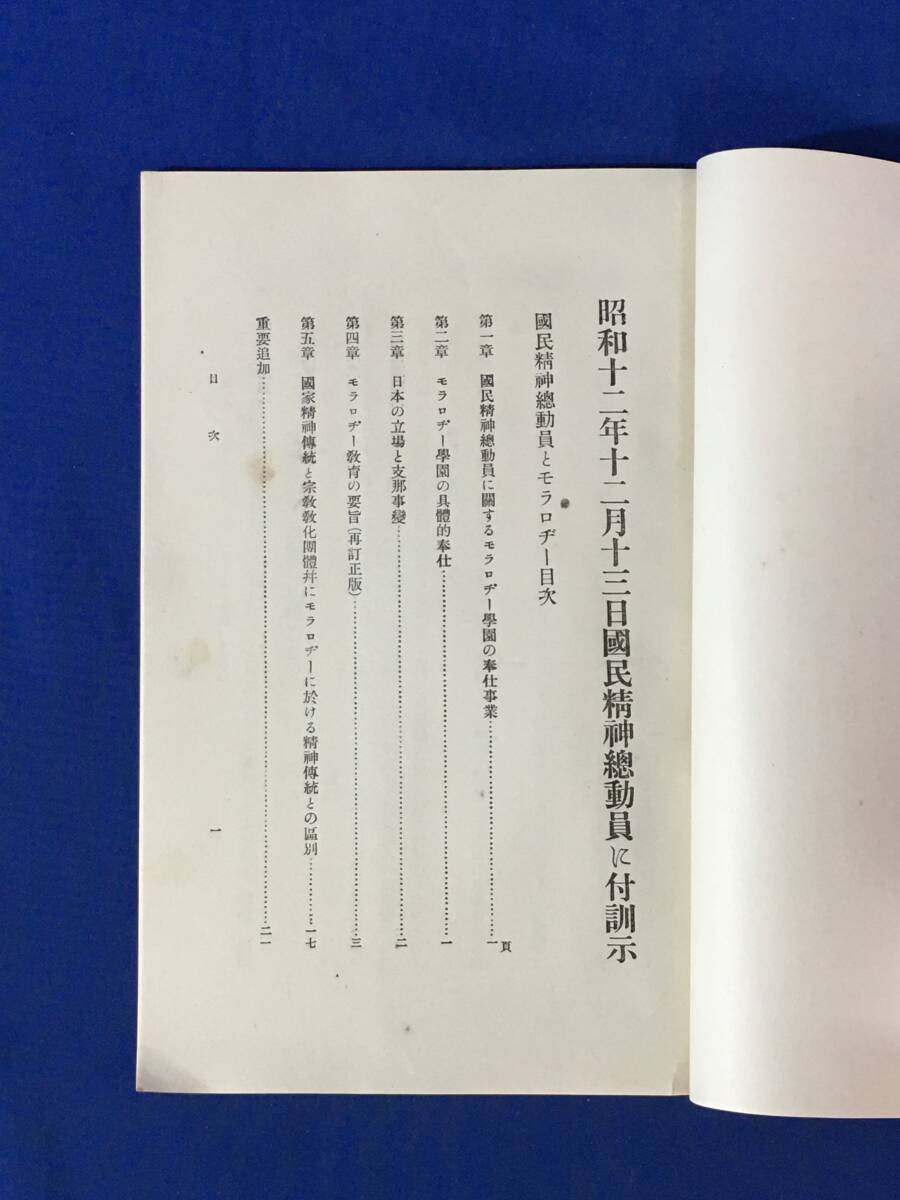 昭和十二年十二月十三日國民精神總動員に付訓示
國民精神總動員とモラロヂー目次
頁
第一章 國民精神總動員に關するモラロヂー學園の奉仕事業…………一
第二章 モラロヂー學園の具體的奉仕…………一
第三章 日本の立場と支那事變…………二
第四章 モラロヂー敎育の要旨(再訂正版)…………三
第五章 國家精神傳統と宗敎敎化團體幷にモラロヂーに於ける精神傳統との區別…………一七
重要追加…………二一
目次 一